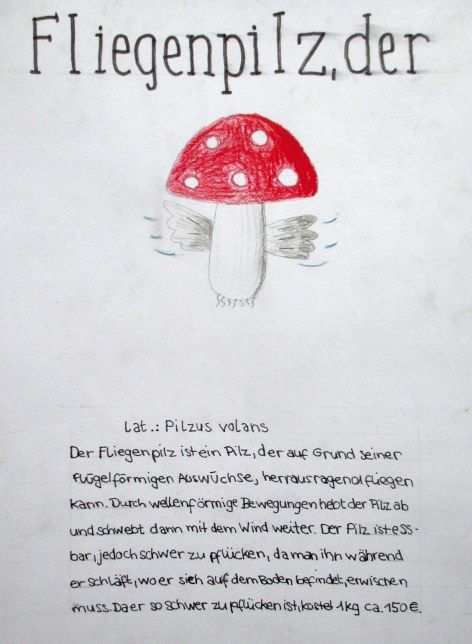 Fliegenpilz, der
lat.: Pilzus volans
Der Fliegenpilz ist ein Pilz, der auf Grund seiner
flügelförmigen Auswüchse, herrausragend fliegen
kann. Durch wellenförmige Bewegungen hebt der Pilz ab
und schwebt dann mit dem Wind weiter. Der Pilz ist ess-
bar, jedoch schwer zu pflücken, da man ihn während
er schläft, wo er sich auf dem Boden befindet, erwischen
muss. Da er so schwer zu pflücken ist, kostet 1kg ca. 150€.